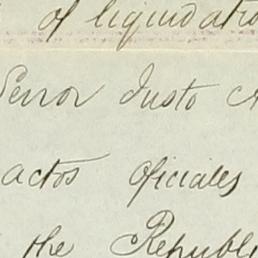 of liquidatio
Senor Justo A
actos oficiales
the Republi